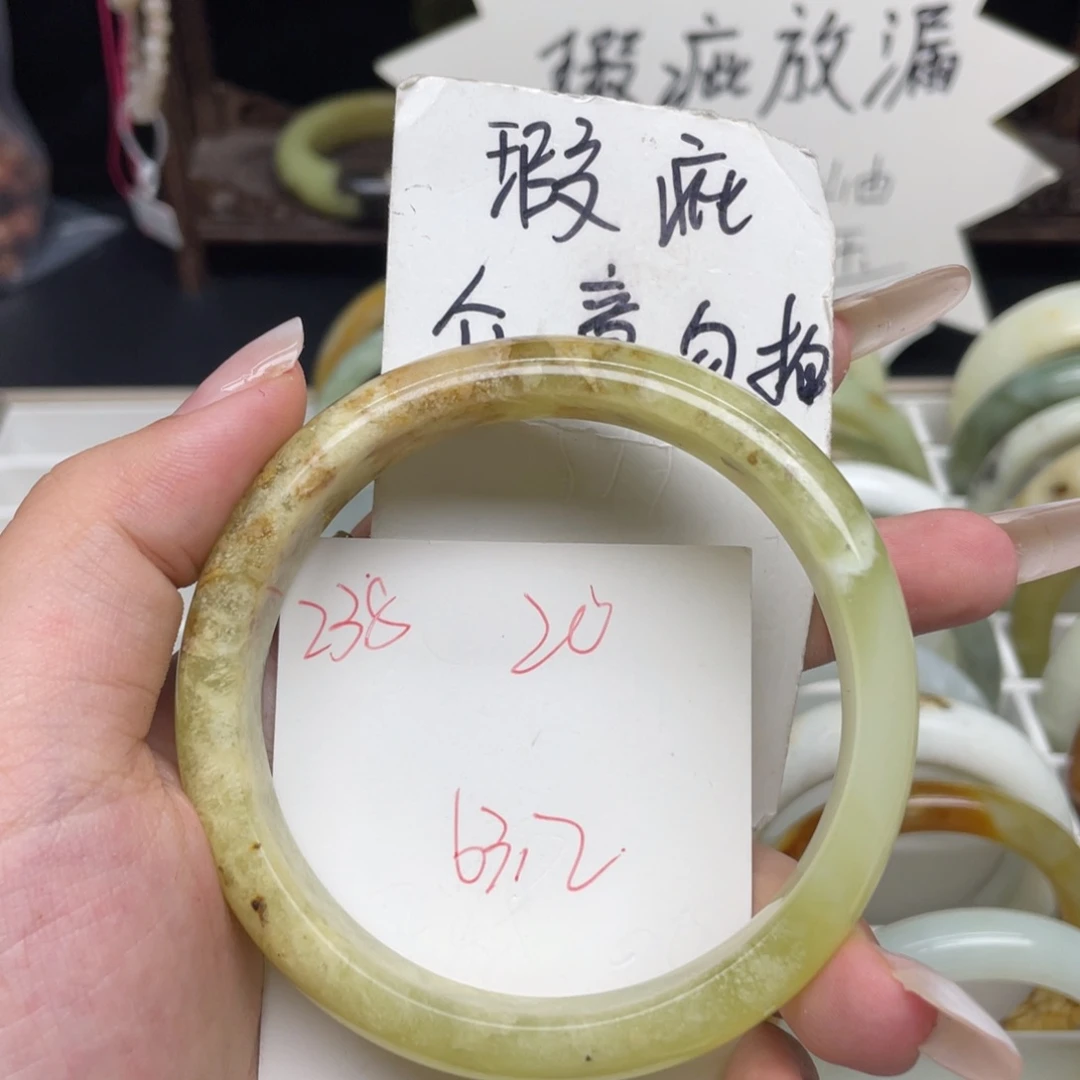 瑕疵放漏
瑕疵
介意勿拍
238 20
63.2